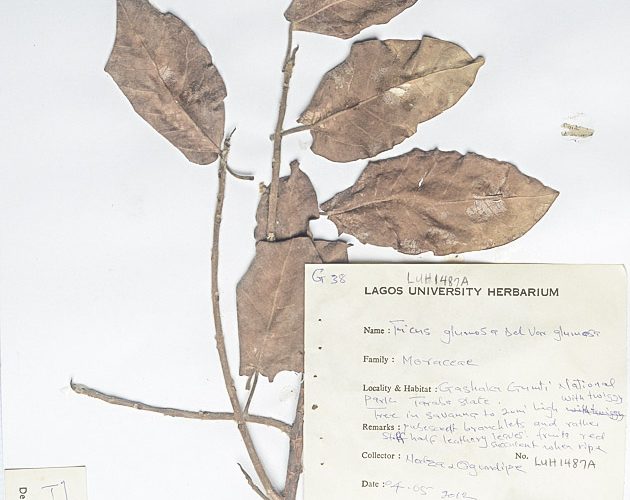 G 38 LUH1487A
LAGOS UNIVERSITY HERBARIUM
Name : Ficus glumosa Del var glumosa
Family : Moraceae
Locality & Habitat : Gashaka Gumti National
park Taraba state. with twiggy
Tree in savanna to 20m high
Remarks : pubescent branchlets and rather
stiff half leathery leaves. fruits red
succulent when ripe
Collector : Ogundipe No. LUH1487A
Date : 04-05 2012
De